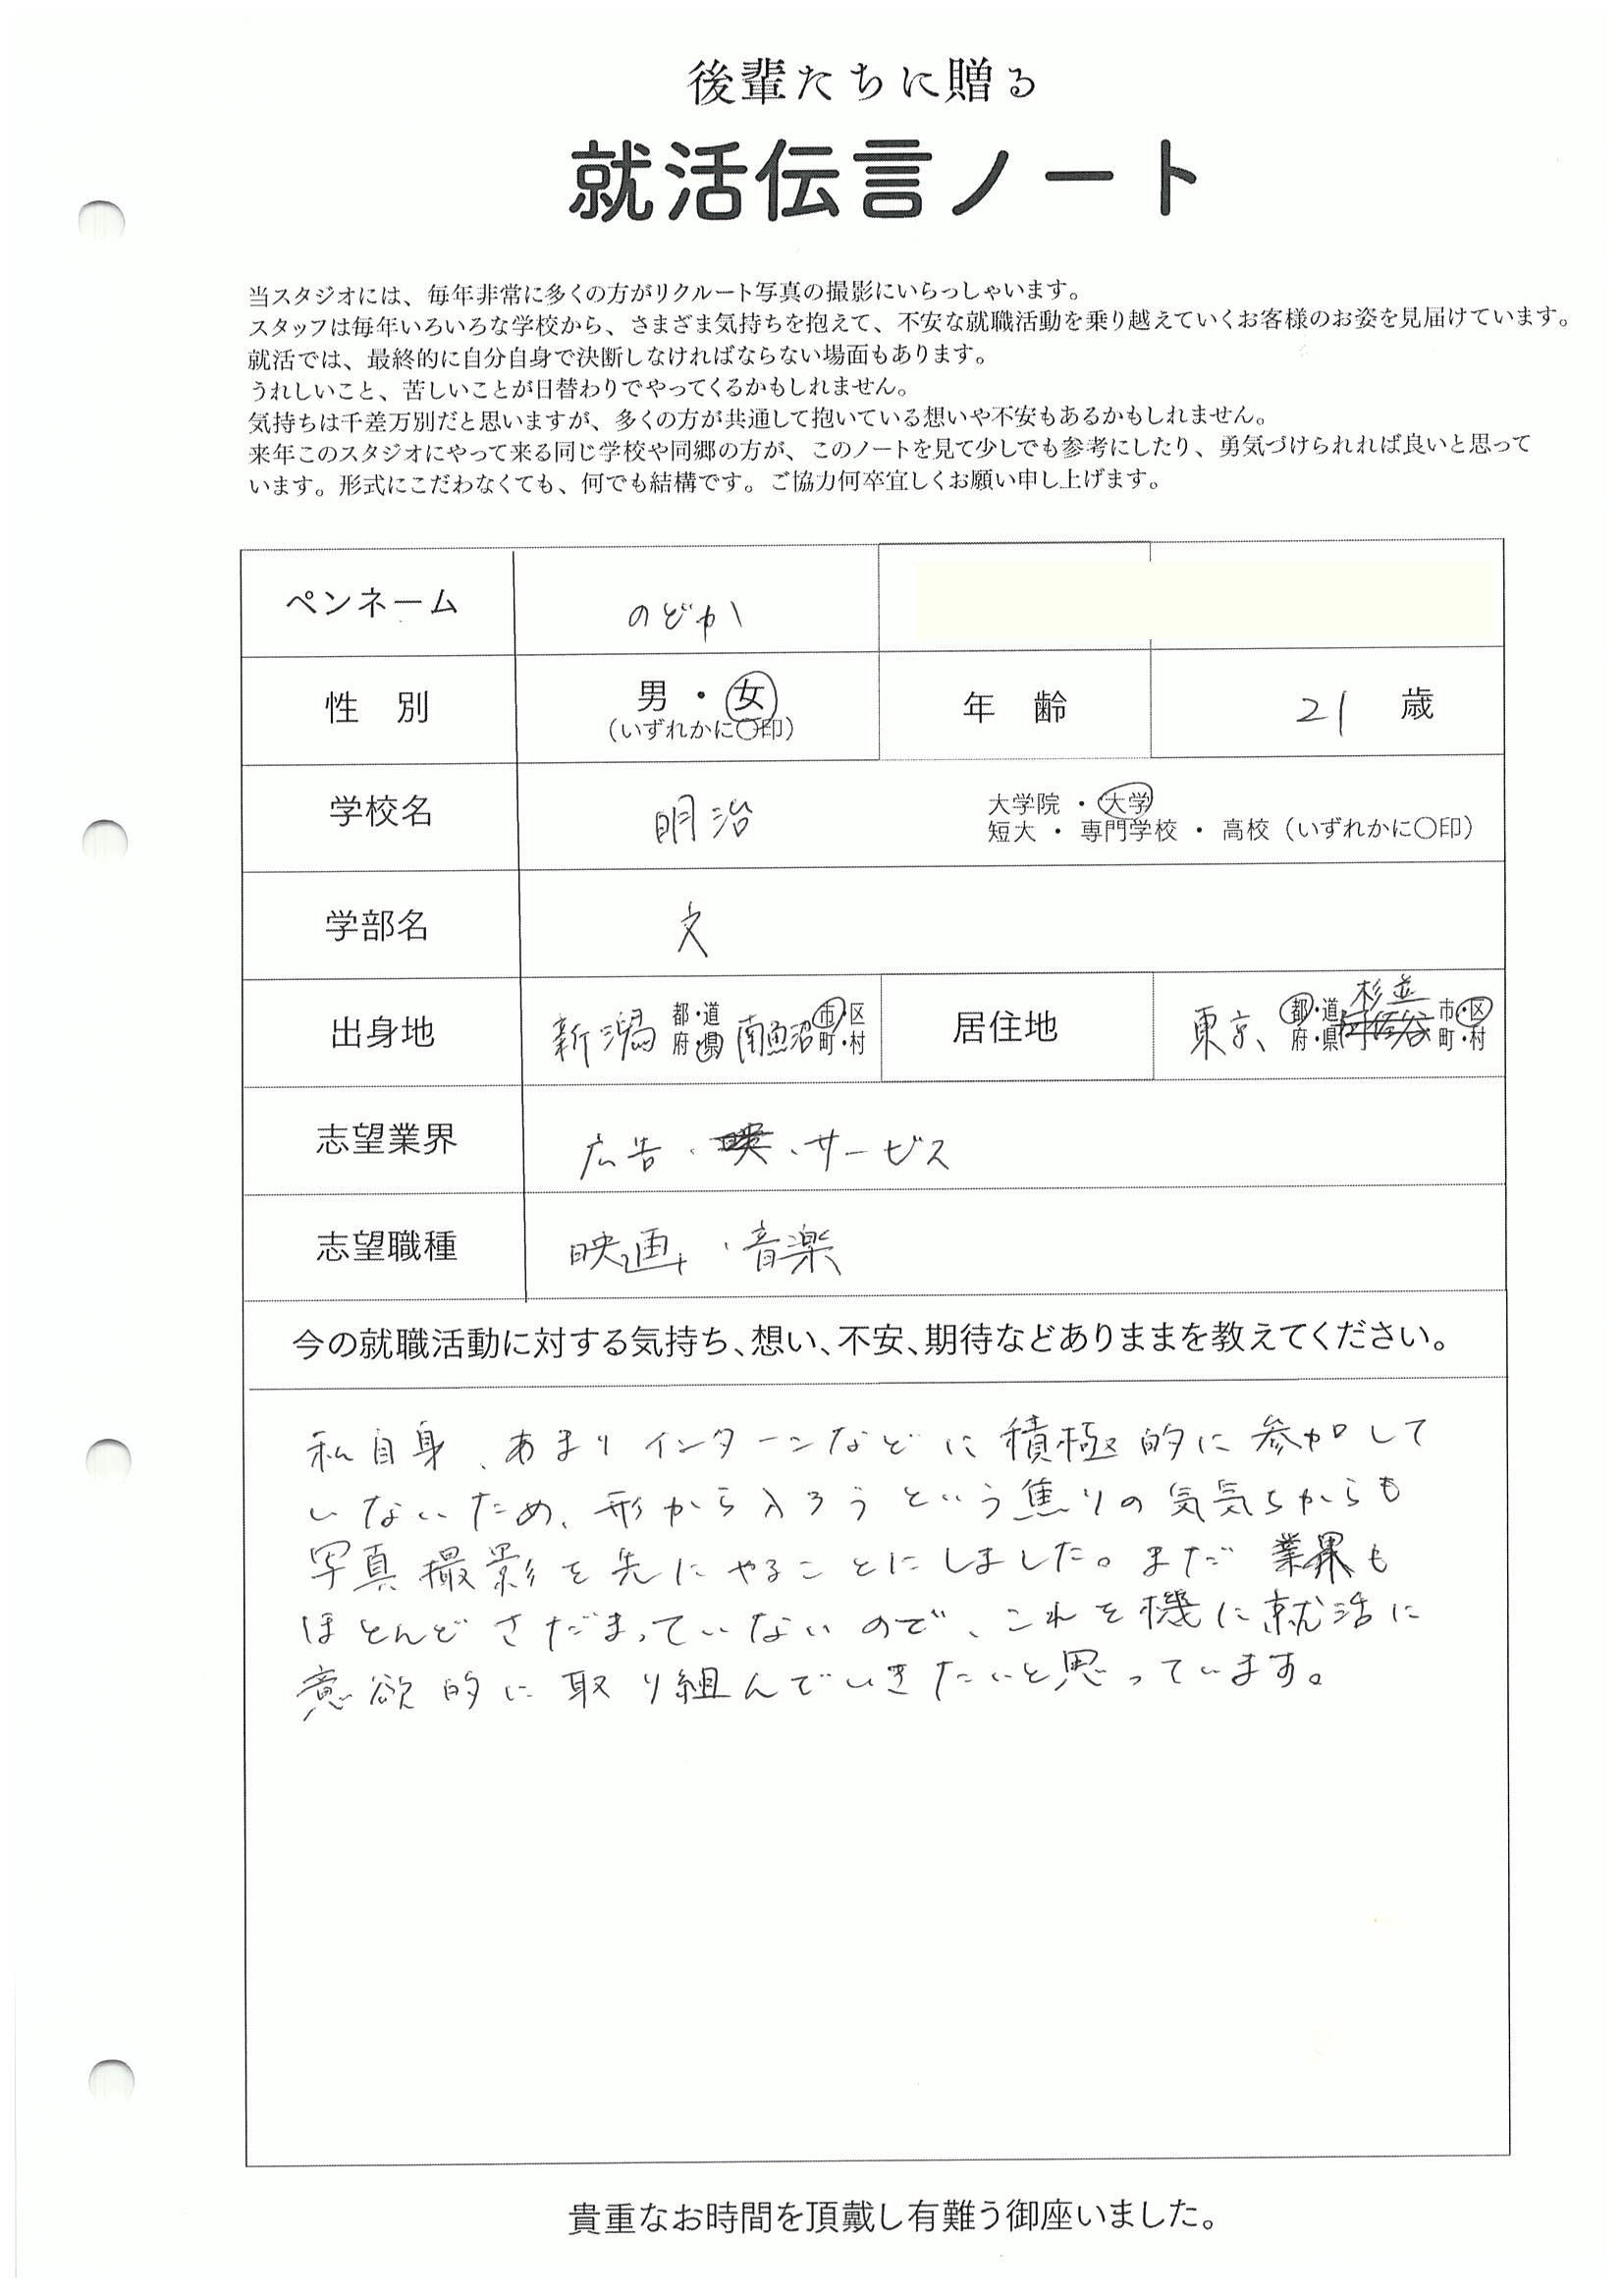 後輩たちに贈る
就活伝言ノート
当スタジオには、毎年非常に多くの方がリクルート写真の撮影にいらっしゃいます。
スタッフは毎年いろいろな学校から、さまざま気持ちを抱えて、不安な就職活動を乗り越えていくお客様のお姿を見届けています。
就活では、最終的に自分自身で決断しなければならない場面もあります。
うれしいこと、苦しいことが日替わりでやってくるかもしれません。
気持ちは千差万別だと思いますが、多くの方が共通して抱いている想いや不安もあるかもしれません。
来年このスタジオにやって来る同じ学校や同郷の方が、このノートを見て少しでも参考にしたり、勇気づけられれば良いと思って
います。形式にこだわなくても、何でも結構です。ご協力何卒宜しくお願い申し上げます。
ペンネーム のどか
性 別 男・女 年 齢 21 歳
(いずれかに〇印)
学校名 明治 大学院・大学
短大・専門学校・高校(いずれかに〇印)
学部名 文
出身地 新潟 都・道 府・県 南魚沼 市・区 町・村 居住地 東京 都・道 府・県 杉並 市・区 町・村
志望業界 広告・サービス
志望職種 映画・音楽
今の就職活動に対する気持ち、想い、不安、期待などありままを教えてください。
私自身、あまりインターンなどに積極的に参加して
いないため、形から入ろうという焦りの気気ちからも
写真撮影を先にやることにしました。まだ業界も
ほとんどさだまっていないので、これを機に就活に
意欲的に取り組んでいきたいと思っています。
貴重なお時間を頂戴し有難う御座いました。